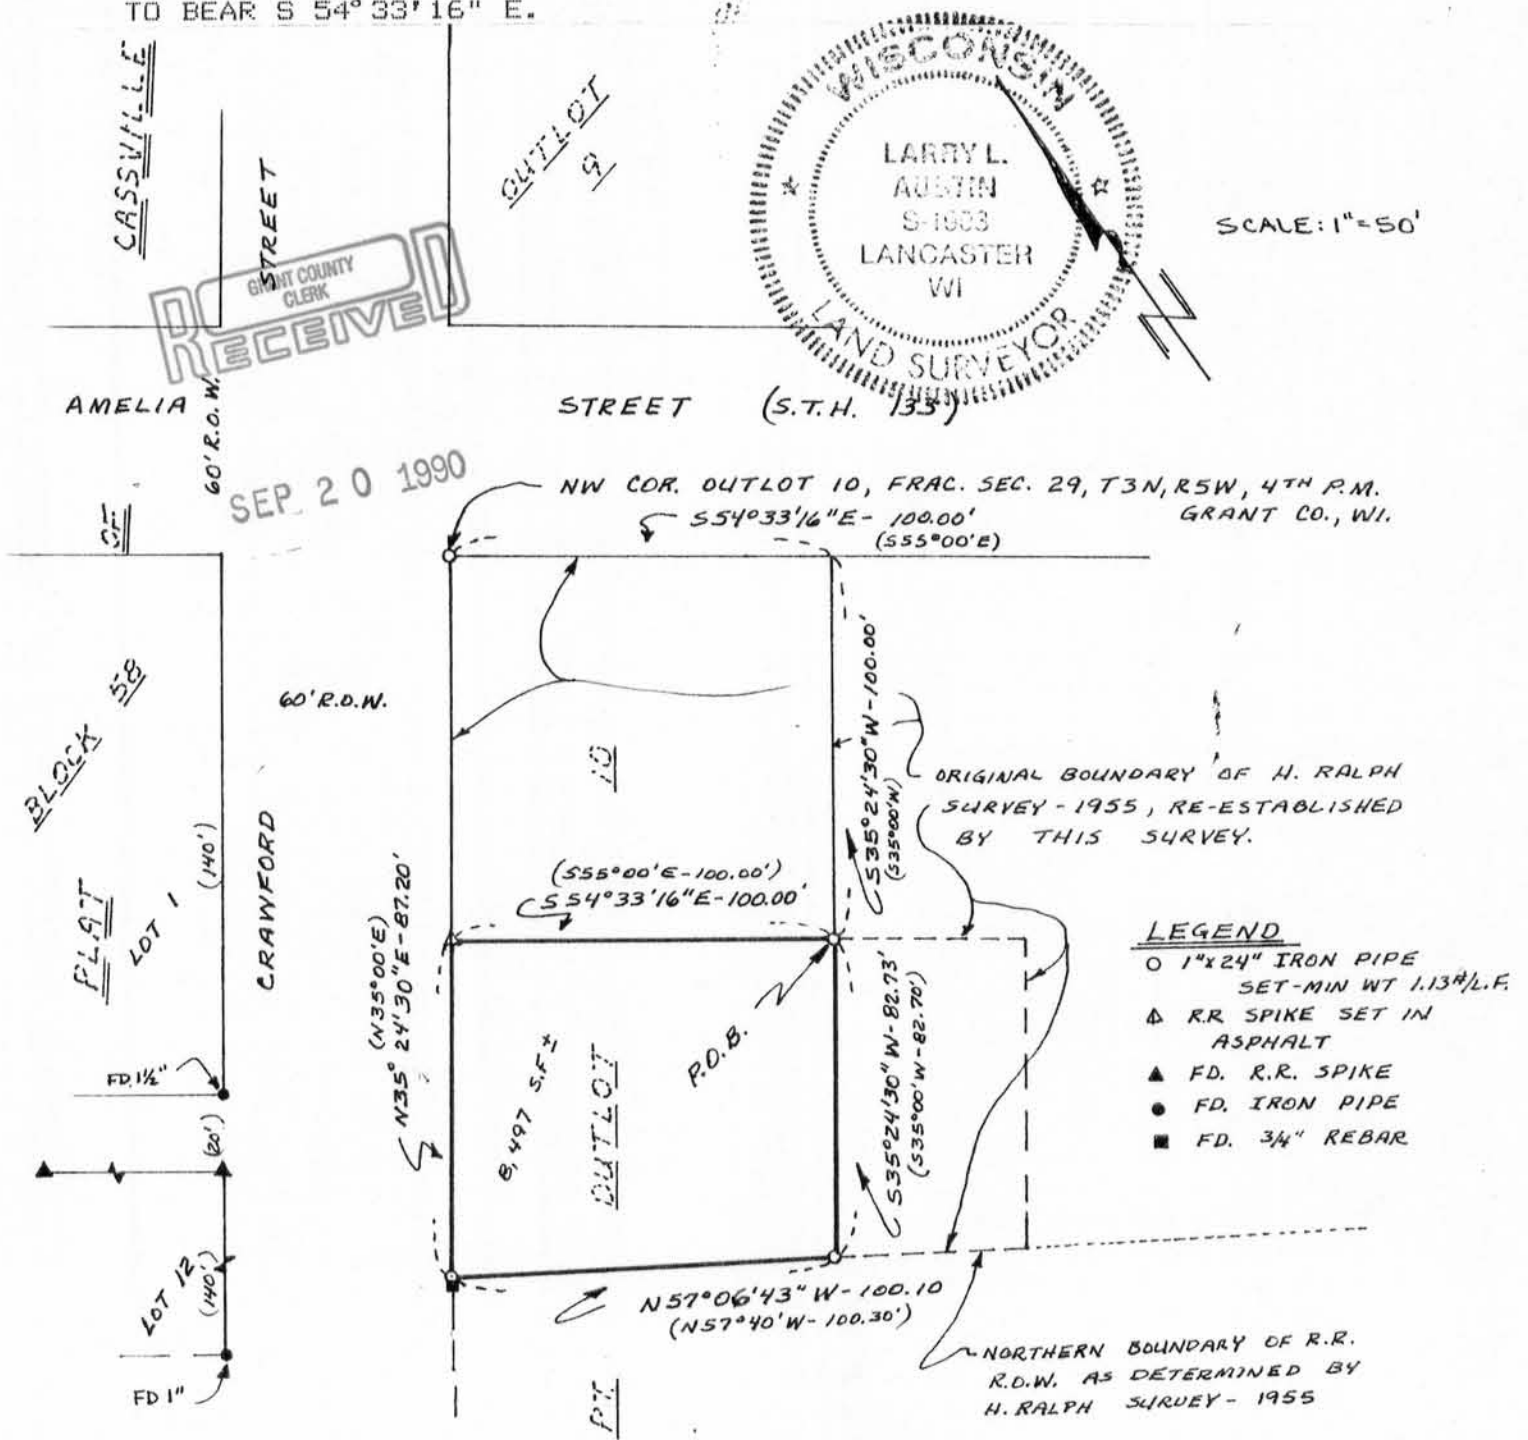 TO BEAR S 54°33'16" E.
CASSVILLE
STREET
OUTLOT
9
WISCONSIN
LARRY L.
AUSTIN
S-1603
LANCASTER
WI
LAND SURVEYOR
SCALE: 1"=50'
GRANT COUNTY
CLERK
RECEIVED
AMELIA
60' R.O.W.
STREET (S.T.H. 133)
SEP 20 1990
OF
NW COR. OUTLOT 10, FRAC. SEC. 29, T3N, R5W, 4TH P.M.
GRANT CO., WI.
S54°33'16"E - 100.00'
(S55°00'E)
BLOCK 58
60' R.O.W.
10
S35°24'30"W - 100.00'
(S35°00'W)
ORIGINAL BOUNDARY OF H. RALPH
SURVEY - 1955, RE-ESTABLISHED
BY THIS SURVEY.
PLAT
LOT 1
(140')
CRAWFORD
(S55°00'E - 100.00')
S54°33'16"E - 100.00'
(N35°00'E)
N35°24'30"E - 87.20'
8,497 S.F ±
OUTLOT
P.O.B.
S35°24'30"W - 82.73'
(S35°00'W - 82.70')
LEGEND
1"x24" IRON PIPE
SET - MIN WT 1.13#/L.F.
R.R SPIKE SET IN
ASPHALT
FD. R.R. SPIKE
FD. IRON PIPE
FD. 3/4" REBAR
FD. 1½"
(20')
LOT 12
(140')
FD 1"
N57°06'43"W - 100.10
(N57°40'W - 100.30')
NORTHERN BOUNDARY OF R.R.
R.O.W. AS DETERMINED BY
H. RALPH SURVEY - 1955
PT.